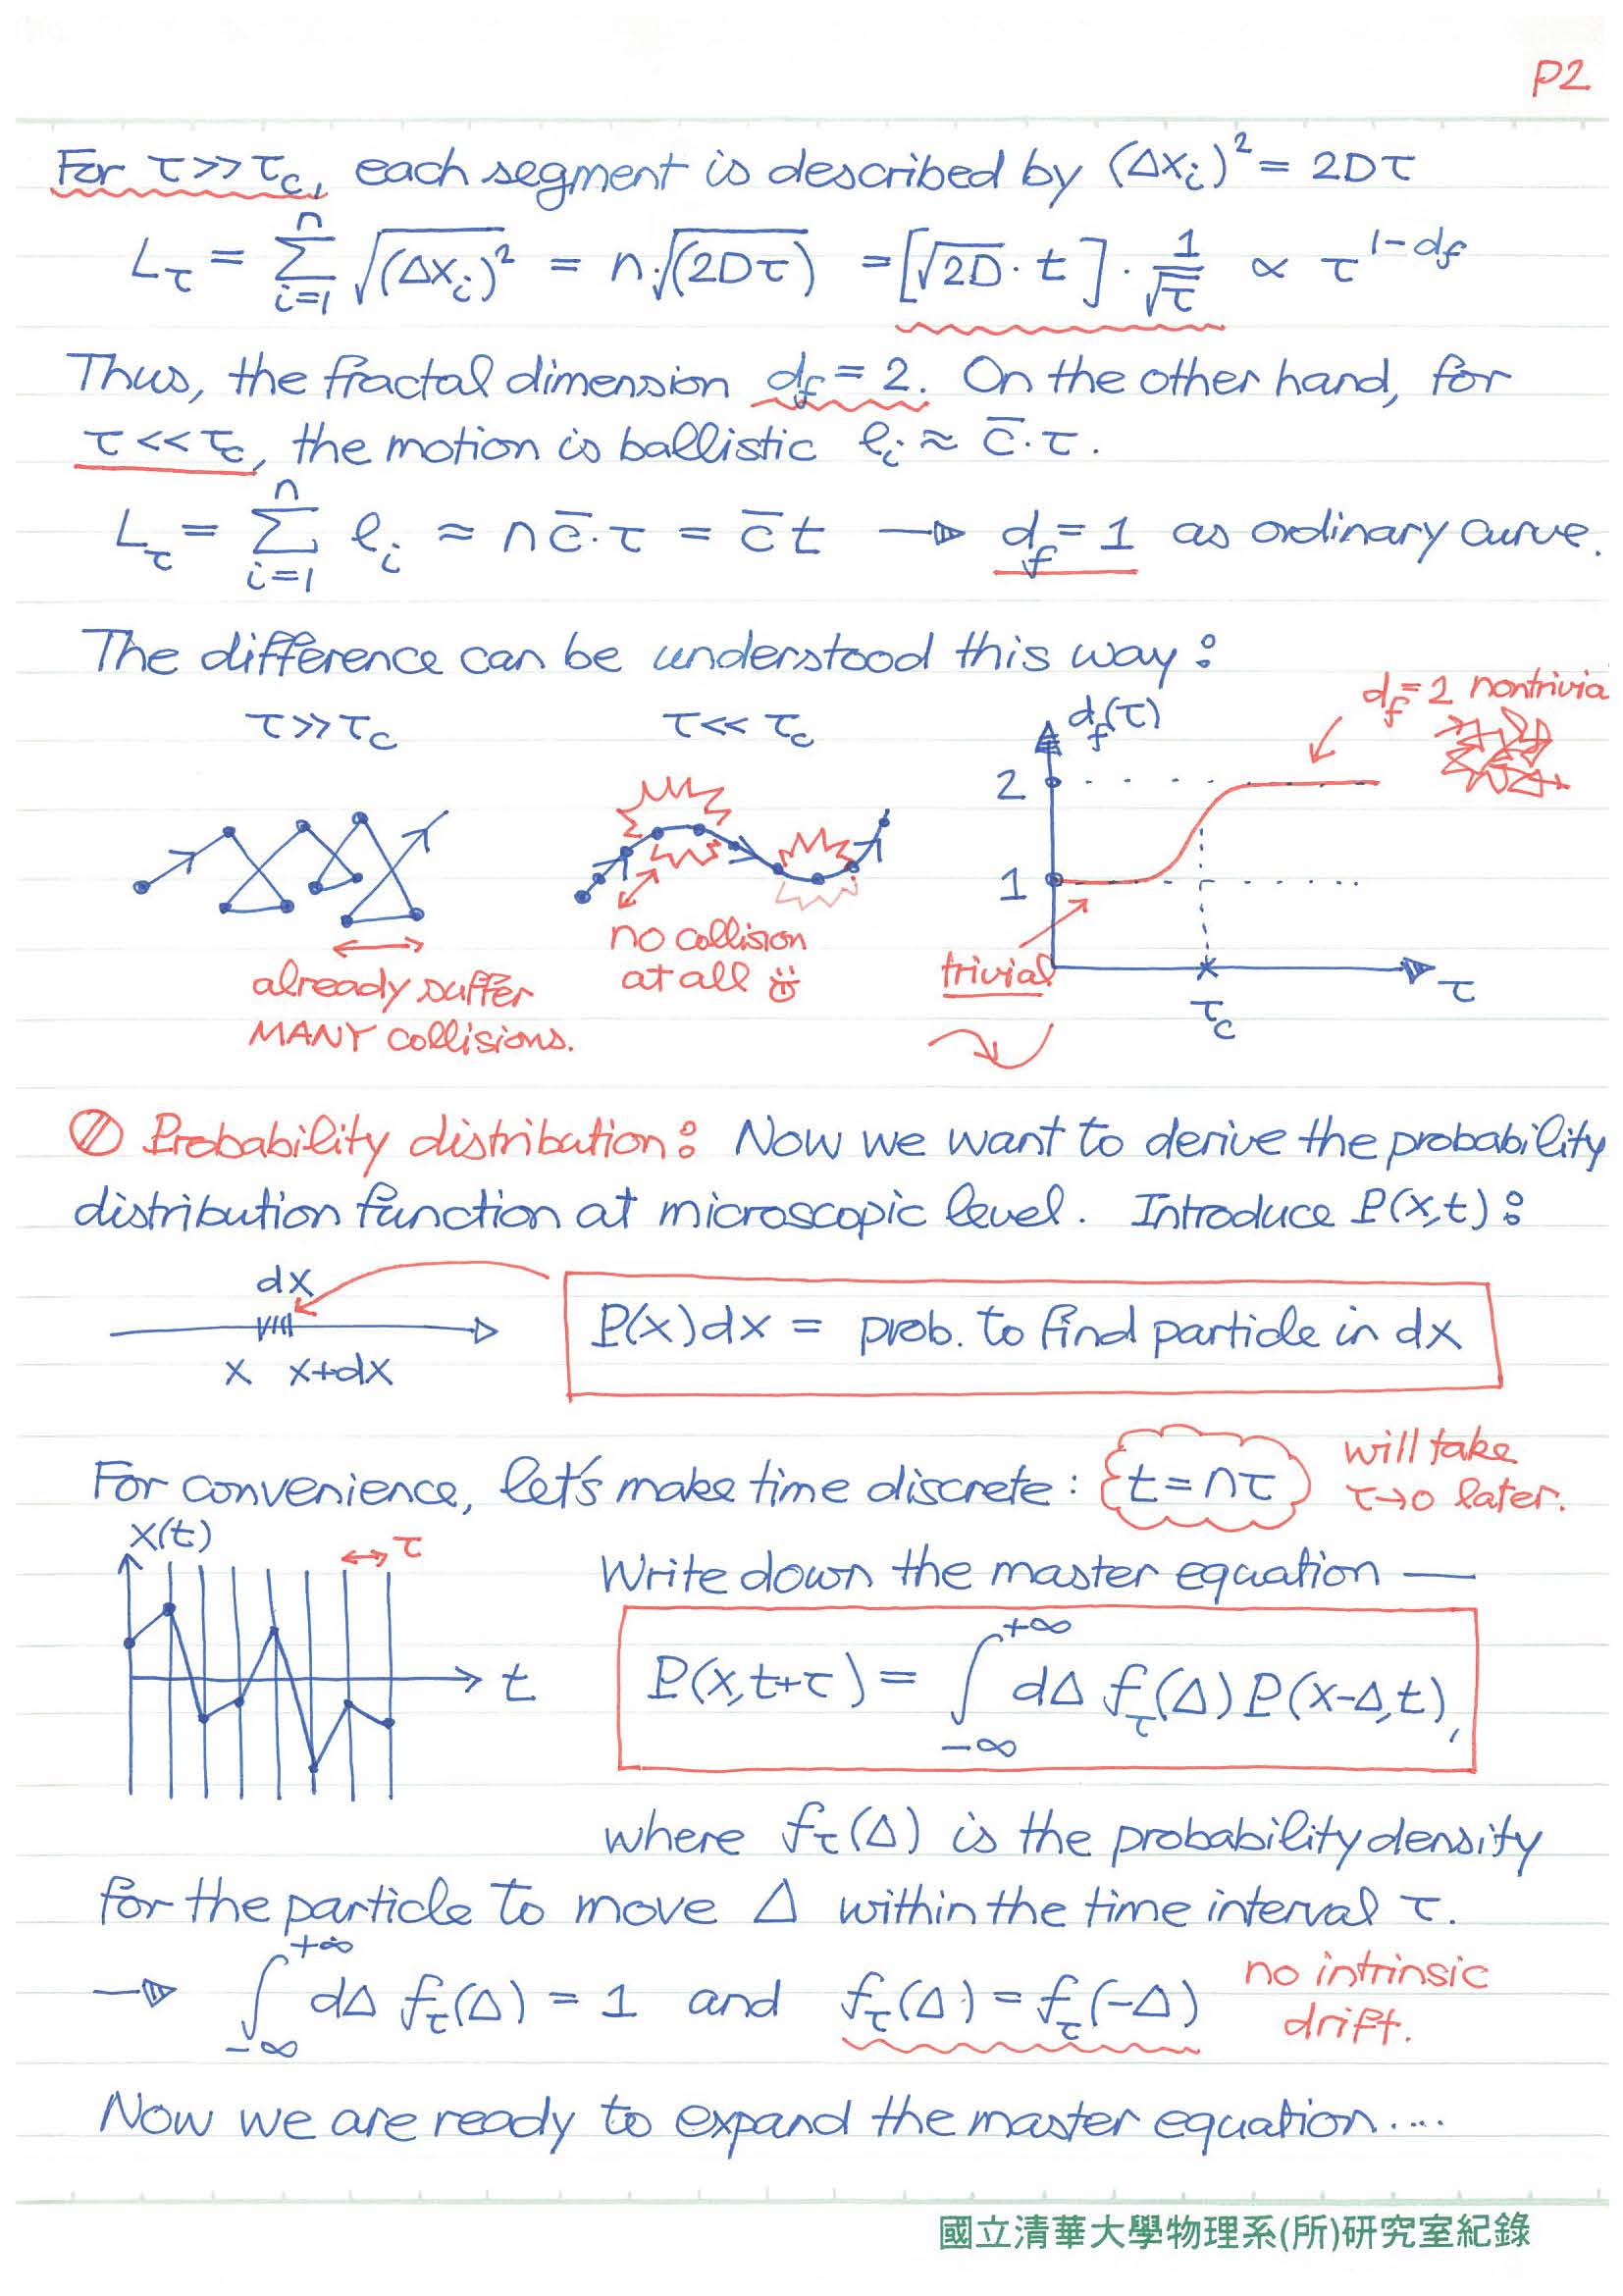 P2
For τ>>τc, each segment is described by (Δxᵢ)² = 2Dτ
L_τ = Σ_{i=1}^{n} √(Δxᵢ)² = n·√(2Dτ) = [√2D · t] · 1/√τ ∝ τ^{1-d_f}
Thus, the fractal dimension d_f = 2. On the other hand, for
τ<<τc, the motion is ballistic ℓᵢ ≈ c̄·τ.
L_τ = Σ_{i=1}^{n} ℓᵢ ≈ n c̄·τ = c̄t → d_f = 1 as ordinary curve.
The difference can be understood this way:
τ>>τc
already suffer
MANY collisions.
τ<<τc
no collision
at all
d_f(τ)
2
1
d_f = 2 nontrivia
trivial
τc
τ
Probability distribution: Now we want to derive the probability
distribution function at microscopic level. Introduce P(x,t):
dx
x x+dx
P(x)dx = prob. to find particle in dx
For convenience, let's make time discrete: t = nτ
will take
τ→0 later.
x(t)
τ
t
Write down the master equation —
P(x,t+τ) = ∫_{-∞}^{+∞} dΔ f_τ(Δ) P(x-Δ,t),
where f_τ(Δ) is the probability density
for the particle to move Δ within the time interval τ.
→ ∫_{-∞}^{+∞} dΔ f_τ(Δ) = 1 and f_τ(Δ) = f_τ(-Δ)
no intrinsic
drift.
Now we are ready to expand the master equation....
國立清華大學物理系(所)研究室紀錄